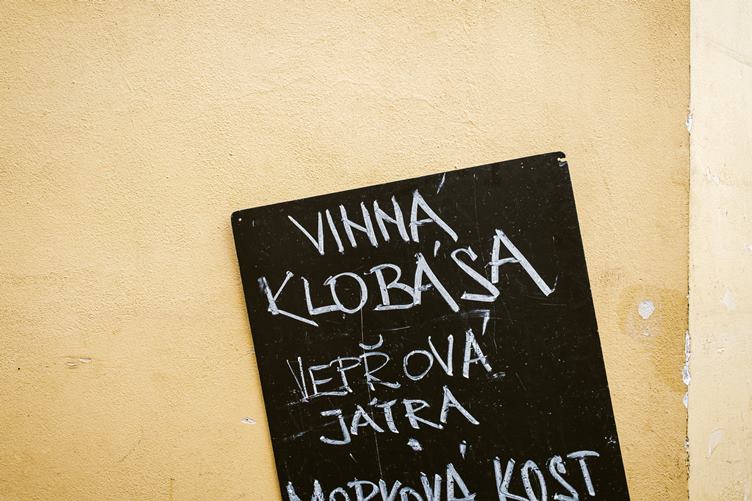 VINNÁ
KLOBÁSA
VEPŘOVÁ
JÁTRA
MORKOVÁ KOST